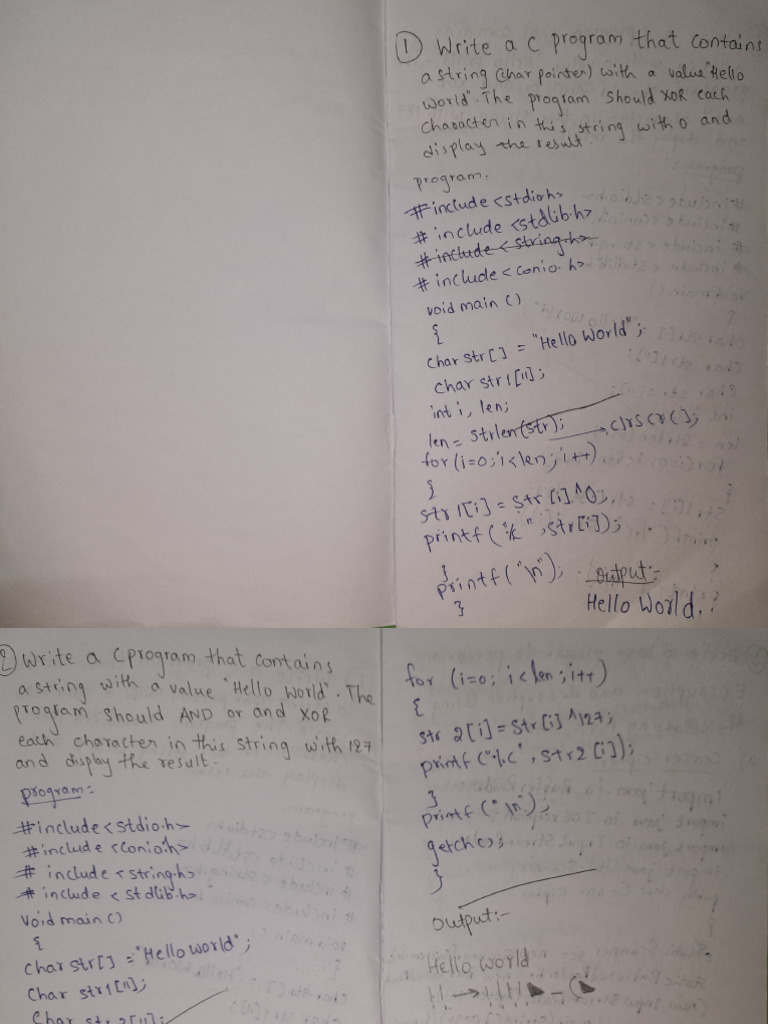 ① Write a C program that contains
a string (char pointer) with a value "Hello
world". The program should XOR each
character in this string with 0 and
display the result.
program.
#include <stdio.h>
# include <stdlib.h>
# include < string.h>
# include < conio.h>
void main ()
{
char str[] = "Hello World";
char str1[11];
int i, len;
len = strlen(str); clrscr();
for (i=0; i<len; i++)
{
str1[i] = str[i]^0;
printf(" ", str[i]);
}
printf("\n");
}
output:-
Hello World.
② Write a C program that contains
a string with a value "Hello World". The
program should AND or and XOR
each character in this string with 127
and display the result.
program:
#include <stdio.h>
#include <conio.h>
# include <string.h>
# include < stdlib.h>
void main ()
{
char str[] = "Hello world";
char str1[11];
char str2[11];
for (i=0; i<len; i++)
{
str 2[i] = str[i]^127;
printf("%c", str2 [i]);
}
printf("\n");
getch();
}
output:-
Hello, world